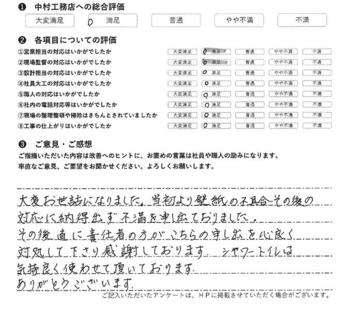 ❶ 中村工務店への総合評価
大変満足 満足 普通 やや不満 不満
❷ 各項目についての評価
①営業担当の対応はいかがでしたか 大変満足 満足 普通 やや不満 不満
②現場監督の対応はいかがでしたか 大変満足 満足 普通 やや不満 不満
③設計担当の対応はいかがでしたか 大変満足 満足 普通 やや不満 不満
④社員大工の対応はいかがでしたか 大変満足 満足 普通 やや不満 不満
⑤職人の対応はいかがでしたか 大変満足 満足 普通 やや不満 不満
⑥社内の電話対応等はいかがでしたか 大変満足 満足 普通 やや不満 不満
⑦現場の整理整頓や掃除はきちんとされていましたか 大変満足 満足 普通 やや不満 不満
⑧工事の仕上がりはいかがでしたか 大変満足 満足 普通 やや不満 不満
❸ ご意見・ご感想
ご指摘いただいた内容は改善へのヒントに、お褒めの言葉は社員や職人の励みになります。
率直なご意見、ご要望をお聞かせください。よろしくお願いします。
大変お世話になりました。当初より壁紙の不具合その後の
対応に納得出来ず不満を申出ておりました。
その後適に責任者の方がこちらの申し出を心良く
対処して下さり感謝しております。シャワートイレは
気持良く使わせて頂いております。
ありがとうございます。
ご記入いただいたアンケートは、HPに掲載させていただく場合がございます。